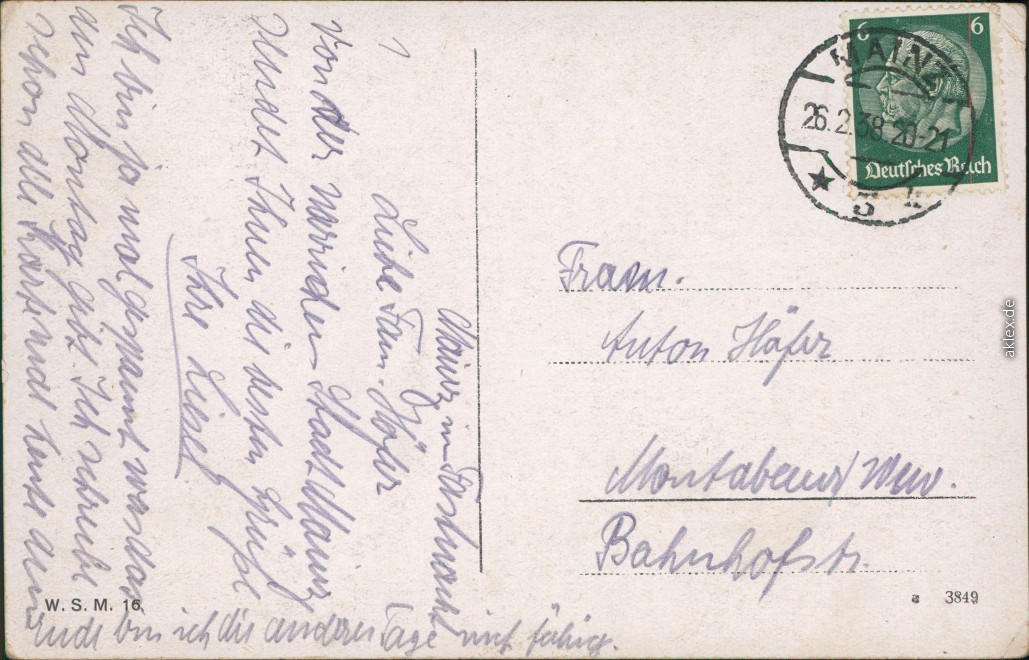 Mainz Fastnacht
Liebe Fam. Höfer
Von der närrischen Stadt Mainz
sendet Ihnen die besten Grüße
Ihre Liesel
Ich bin ja mal gespannt was das
am Montag gibt. Ich schreibe
schon alle Karten heute denn
ende bin ich die anderen Tage nicht fähig.
W. S. M. 16
6 6
Deutsches Reich
MAINZ
26.2.38.20-21
Anton Höfer
Montabaur/Wew.
Bahnhofstr.
a 3849
aklex.de